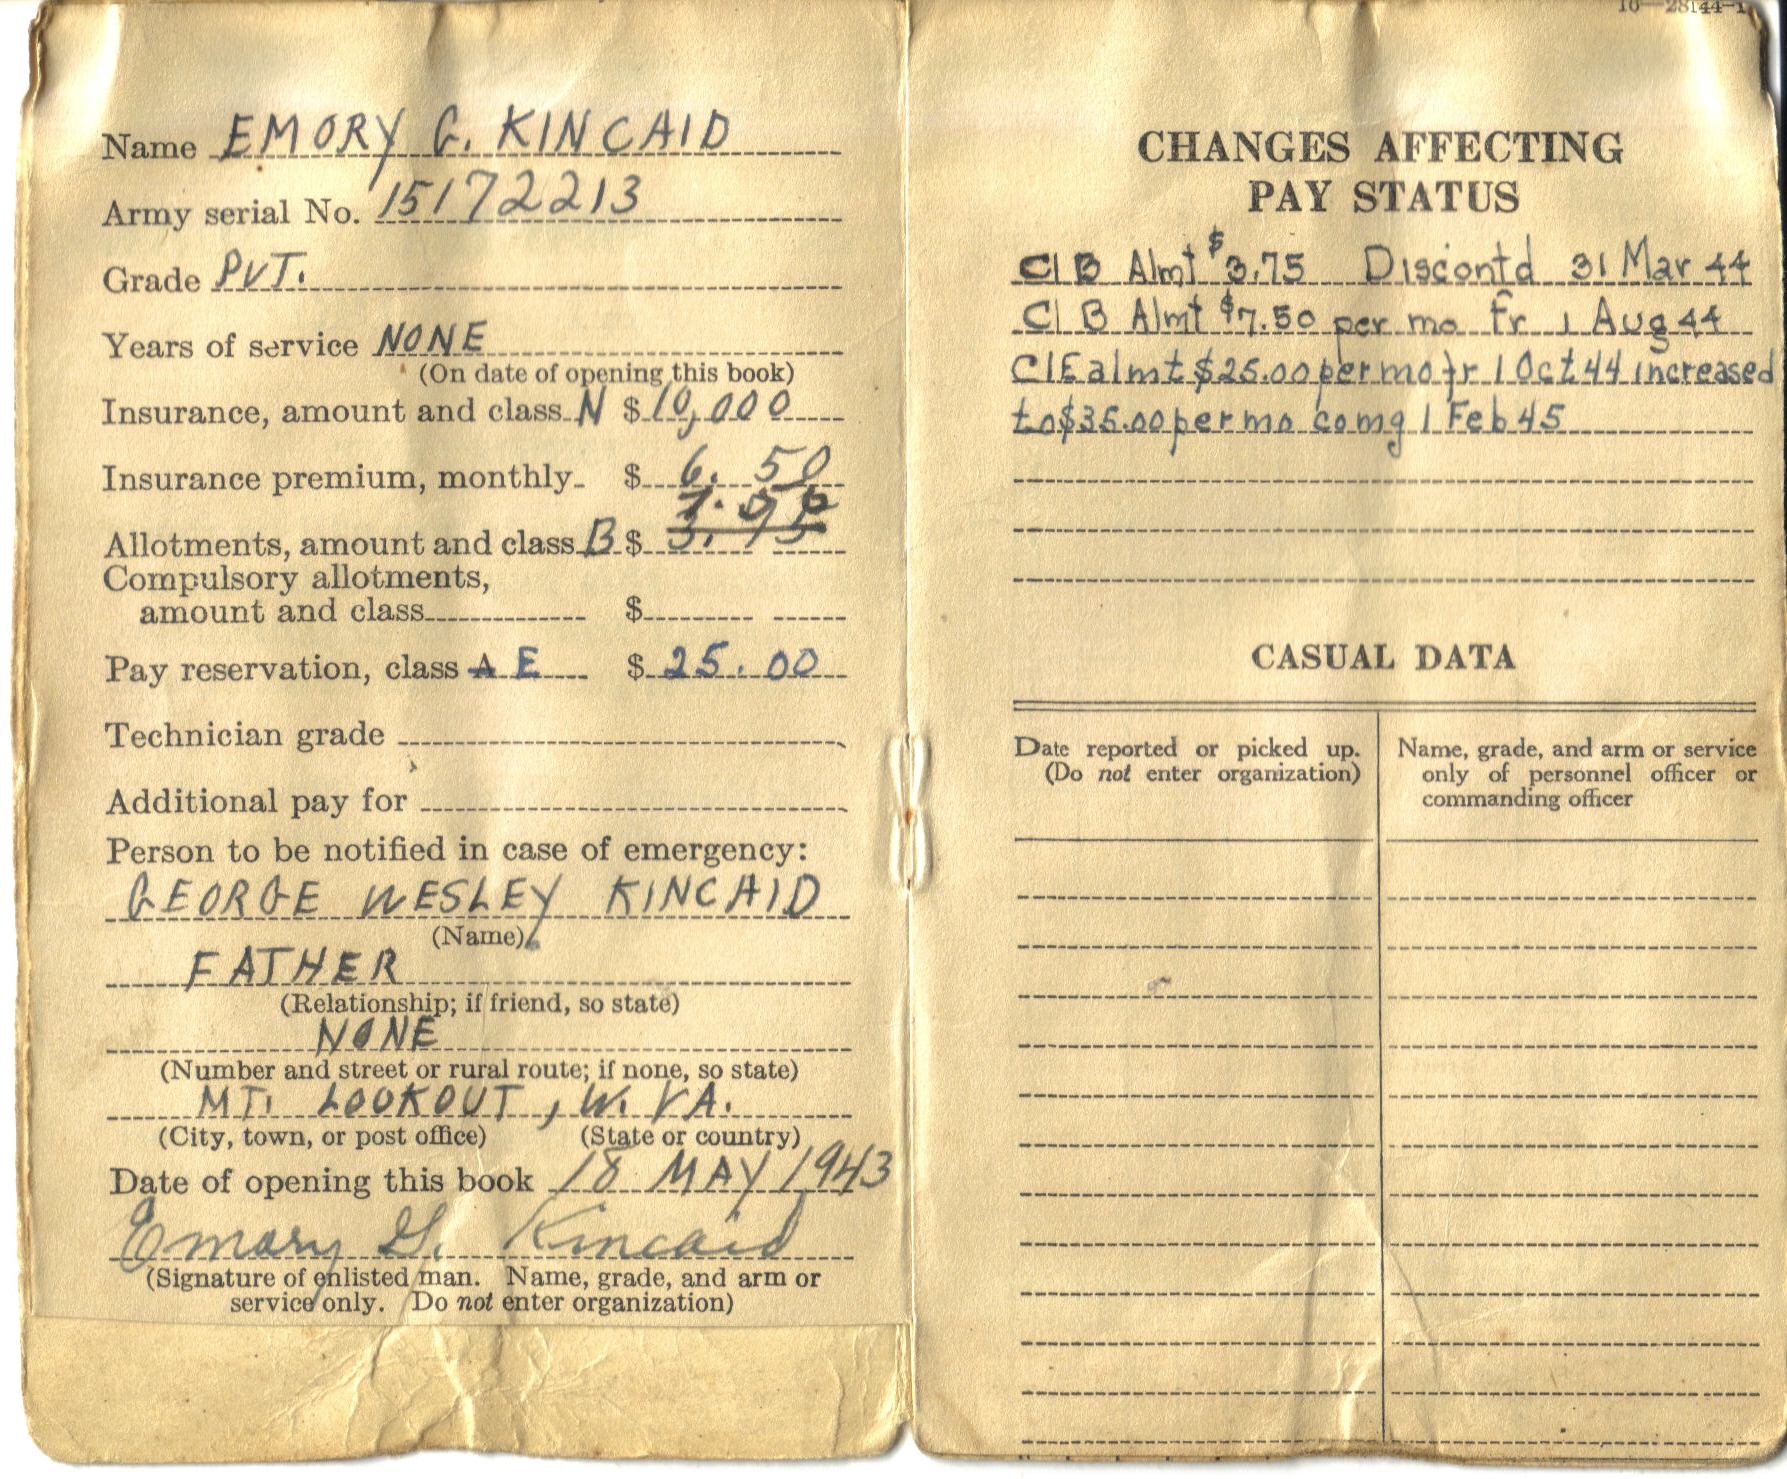 Name EMORY G. KINCAID
Army serial No. 15172213
Grade PVT.
Years of service NONE
(On date of opening this book)
Insurance, amount and class N $ 10,000
Insurance premium, monthly $ 6. 50
7. 50
Allotments, amount and class B $ 3. 75
Compulsory allotments,
amount and class $
Pay reservation, class A E $ 25.00
Technician grade
Additional pay for
Person to be notified in case of emergency:
GEORGE WESLEY KINCAID
(Name)
FATHER
(Relationship; if friend, so state)
NONE
(Number and street or rural route; if none, so state)
MT. LOOKOUT, W. VA.
(City, town, or post office) (State or country)
Date of opening this book 18 MAY 1943
Emory G. Kincaid
(Signature of enlisted man. Name, grade, and arm or
service only. Do not enter organization)
16—28144-1
CHANGES AFFECTING
PAY STATUS
Cl B Almt $3.75 Discontd 31 Mar 44
Cl B Almt $7.50 per mo fr 1 Aug 44
Cl E almt $25.00 per mo fr 1 Oct 44 increased
to $35.00 per mo comg 1 Feb 45
CASUAL DATA
Date reported or picked up.
(Do not enter organization)
Name, grade, and arm or service
only of personnel officer or
commanding officer